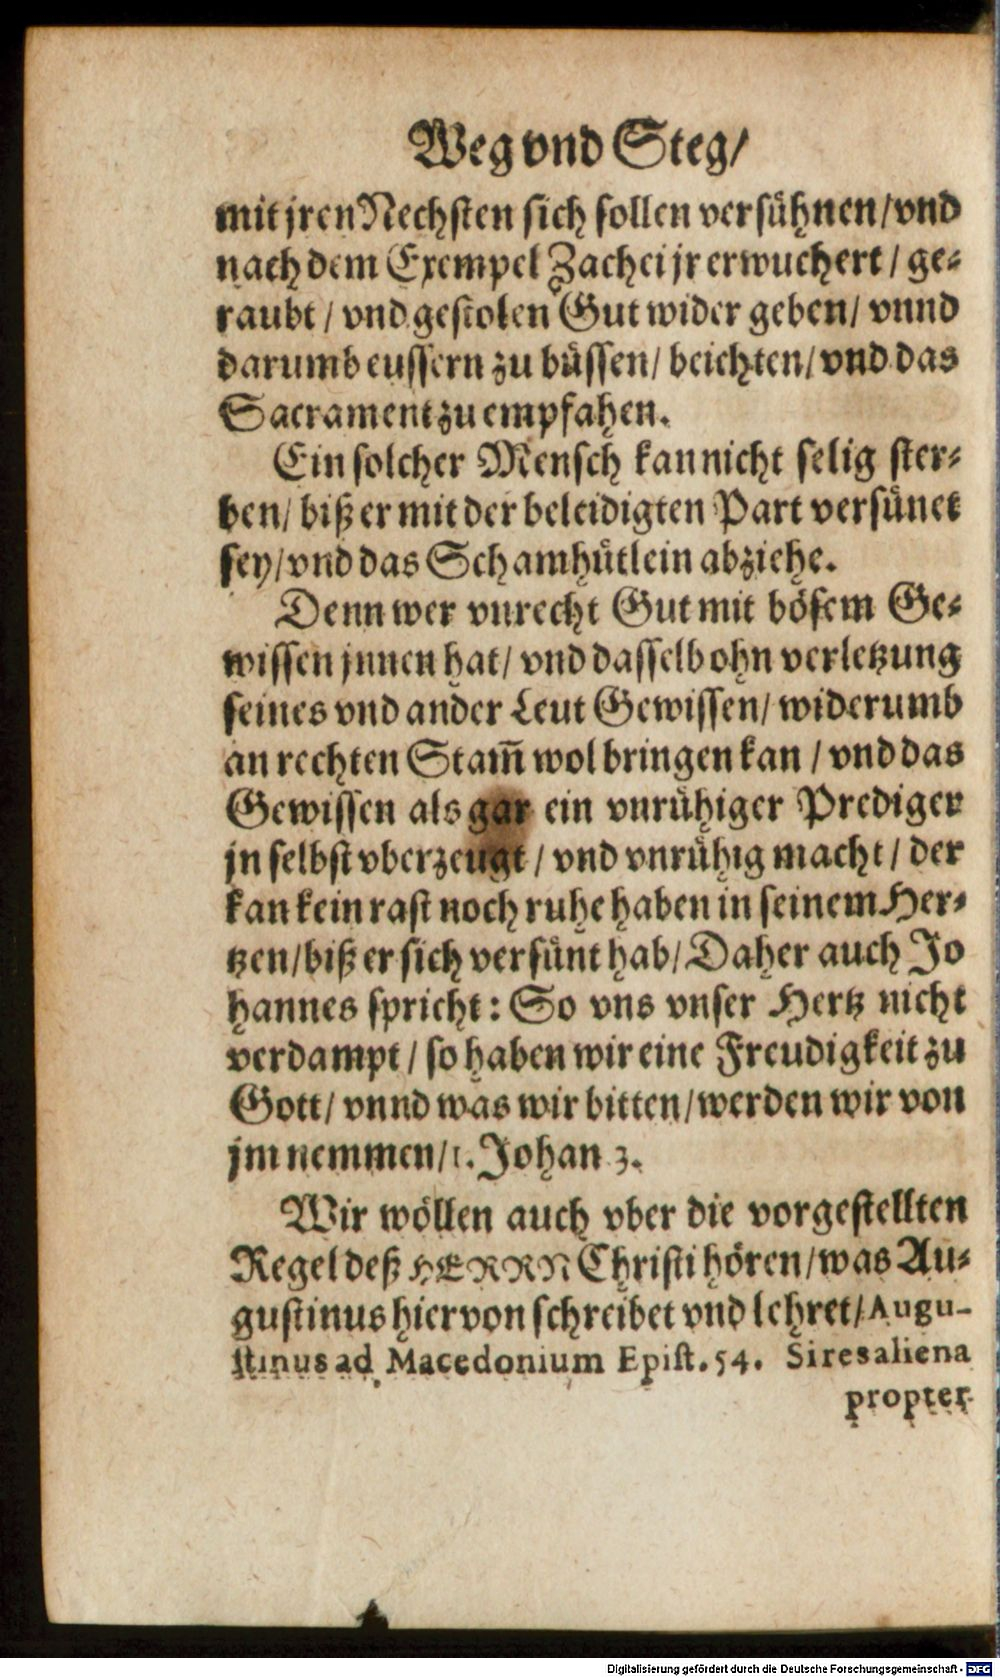 Weg vnd Steg/
mit jren Nechsten sich sollen versühnen/vnd
nach dem Exempel Zachei jr erwuchert / ge-
raubt / vnd gestolen Gut wider geben/ vnnd
darumb eussern zu büssen/ beichten/ vnd das
Sacrament zu empfahen.
Ein solcher Mensch kan nicht selig ster-
ben/ biß er mit der beleidigten Part versünet
sey/vnd das Schamhütlein abziehe.
Denn wer vnrecht Gut mit bösem Ge-
wissen jnnen hat/ vnd dasselb ohn verletzung
seines vnd ander Leut Gewissen/ widerumb
an rechten Stam̃ wol bringen kan / vnd das
Gewissen als gar ein vnrühiger Prediger
jn selbst vberzeugt / vnd vnrühig macht / der
kan kein rast noch ruhe haben in seinem Her-
tzen/biß er sich versünt hab/ Daher auch Jo
hannes spricht: So vns vnser Hertz nicht
verdampt / so haben wir eine Freudigkeit zu
Gott/ vnnd was wir bitten/werden wir von
jm nemmen/1. Johan 3.
Wir wöllen auch vber die vorgestellten
Regel deß HERRN Christi hören/was Au-
gustinus hiervon schreibet vnd lehret/Augu-
stinus ad Macedonium Epist. 54. Si res aliena
propter
Digitalisierung gefördert durch die Deutsche Forschungsgemeinschaft - DFG